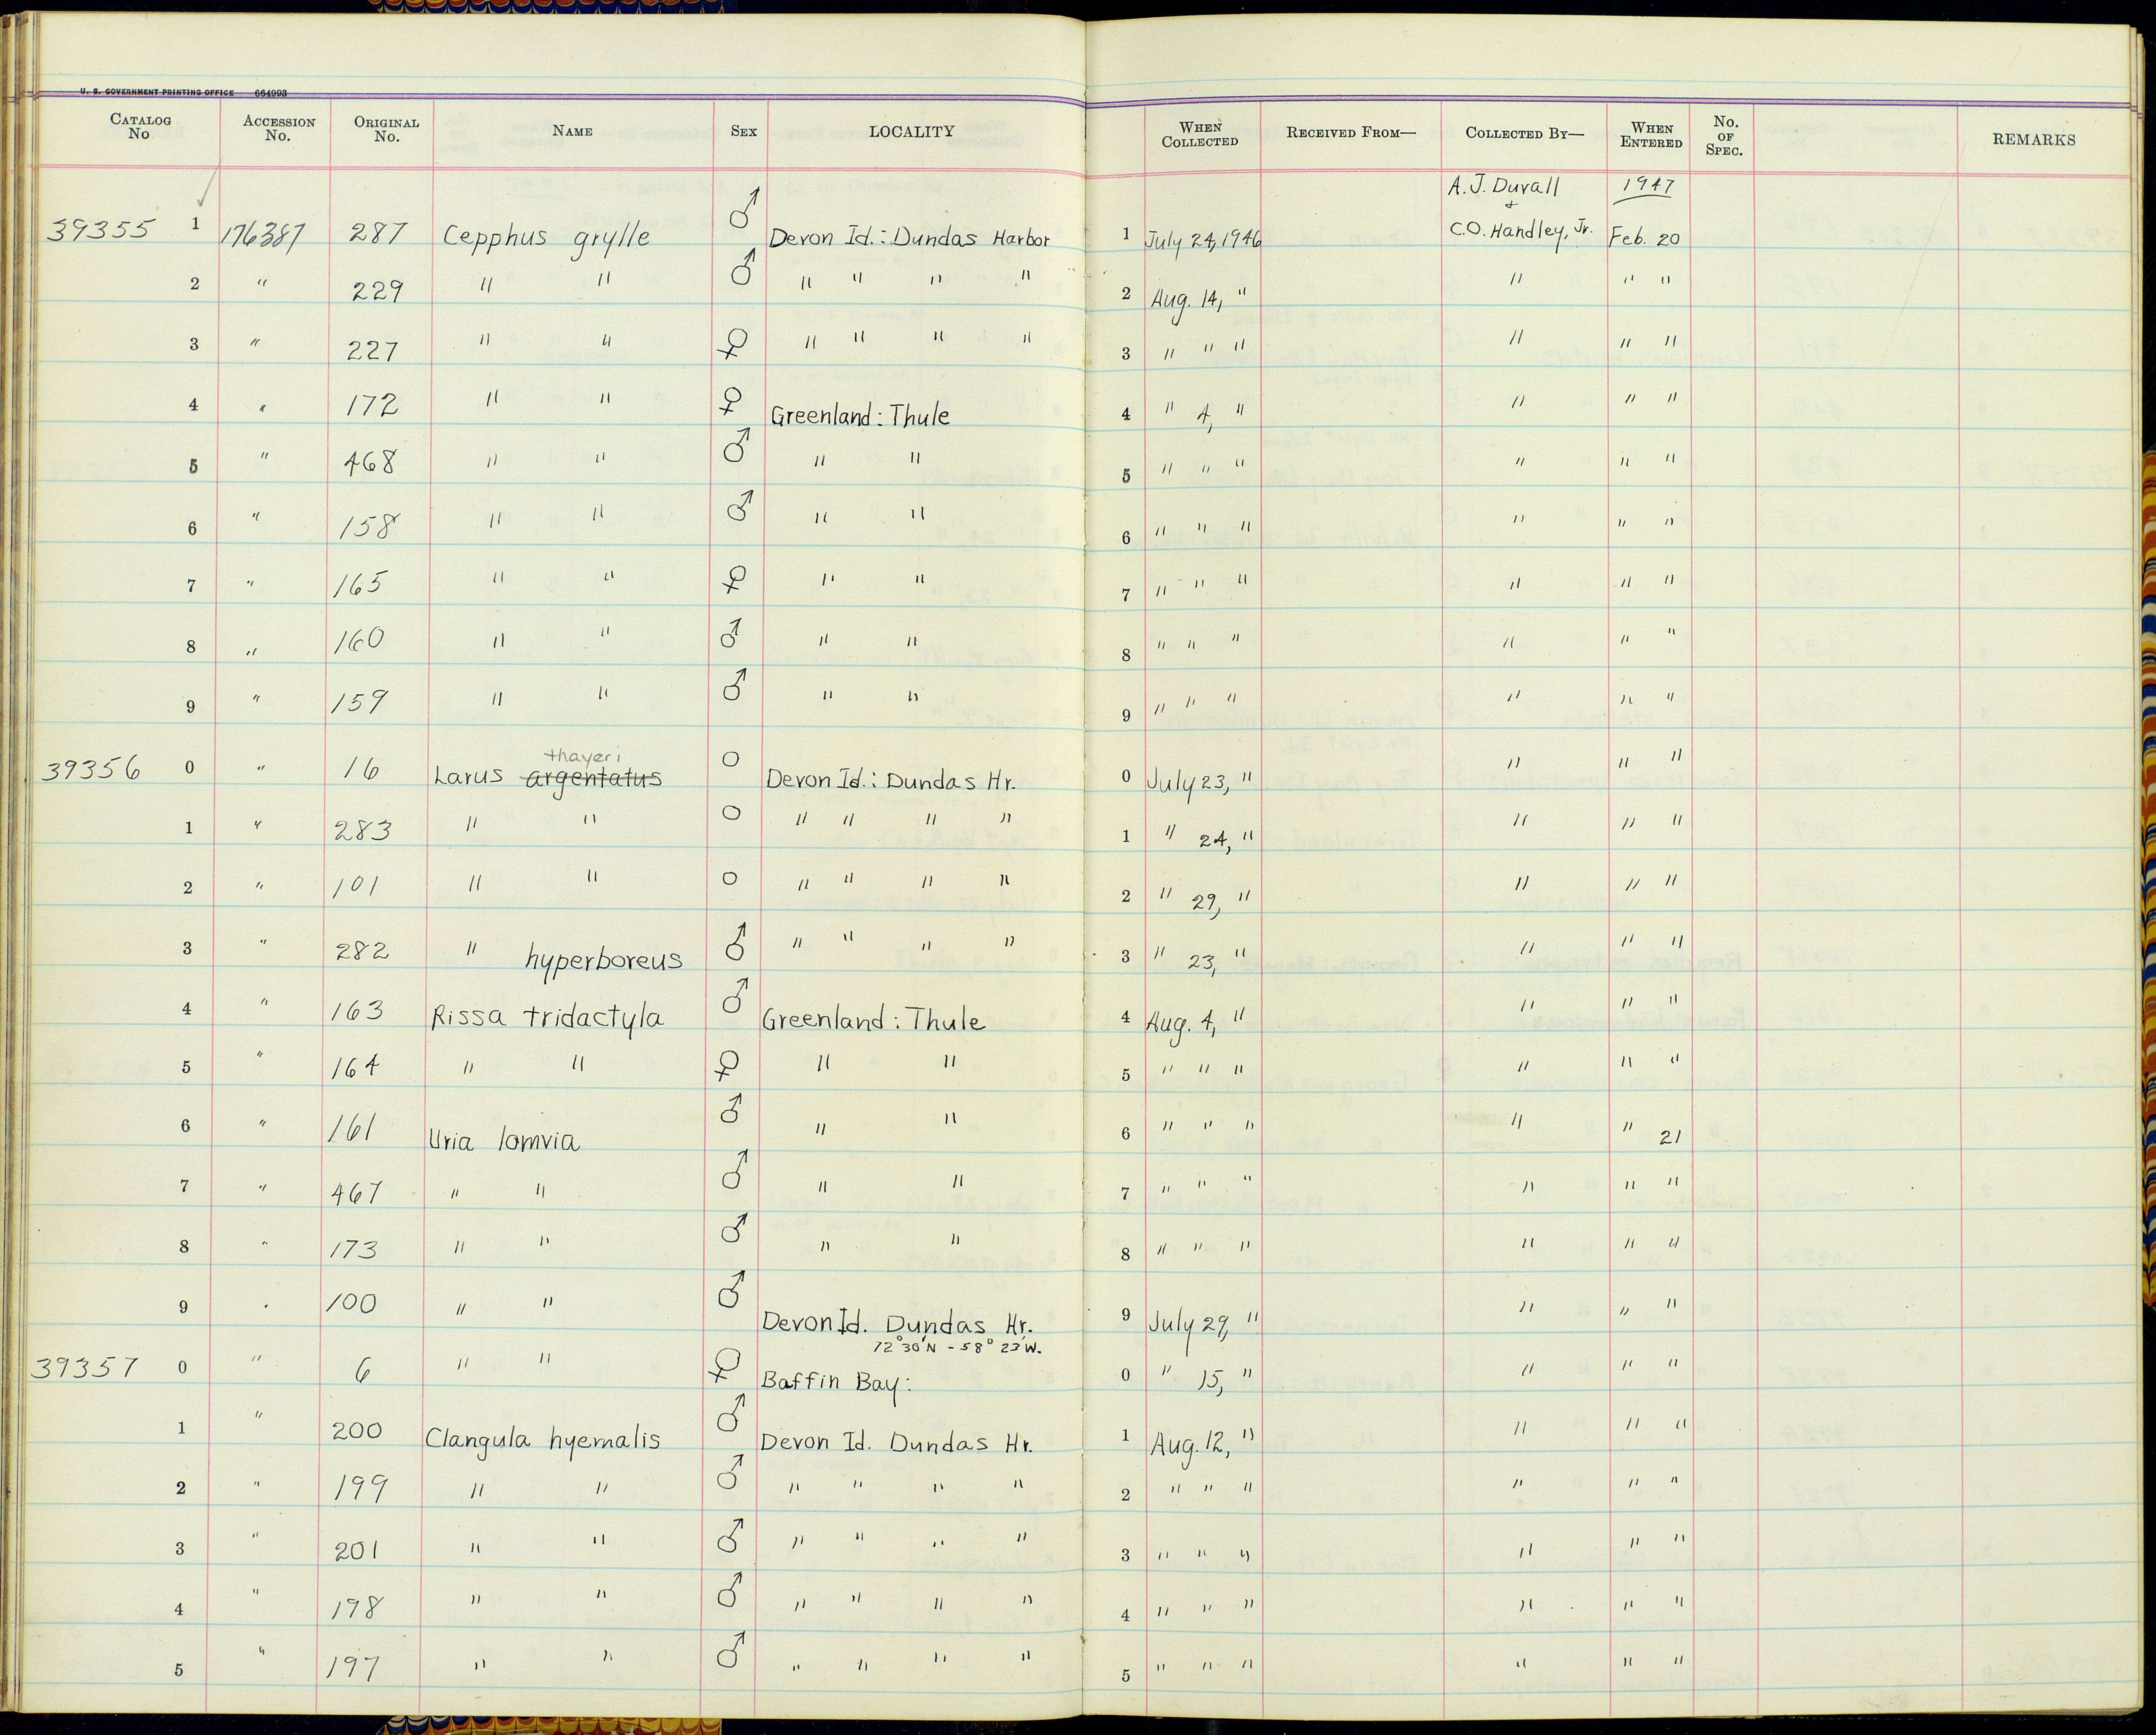 U. S. GOVERNMENT PRINTING OFFICE 664993
CATALOG No ACCESSION No. ORIGINAL No. NAME SEX LOCALITY WHEN COLLECTED RECEIVED FROM— COLLECTED BY— WHEN ENTERED No. OF SPEC. REMARKS
A. J. Duvall 1947
+
39355 1 176387 287 Cepphus grylle ♂ Devon Id.: Dundas Harbor 1 July 24, 1946 C.O. Handley, Jr. Feb. 20
2 " 229 " " ♂ " " " " 2 Aug. 14, " " " "
3 " 227 " " ♀ " " " " 3 " " " " " "
4 " 172 " " ♀ Greenland: Thule 4 " 4, " " " "
5 " 468 " " ♂ " " 5 " " " " " "
6 " 158 " " ♂ " " 6 " " " " " "
7 " 165 " " ♀ " " 7 " " " " " "
8 " 160 " " ♂ " " 8 " " " " " "
9 " 159 " " ♂ " " 9 " " " " " "
thayeri
39356 0 " 16 Larus argentatus ○ Devon Id.: Dundas Hr. 0 July 23, " " " "
1 " 283 " " ○ " " " " 1 " 24, " " " "
2 " 101 " " ○ " " " " 2 " 29, " " " "
3 " 282 " hyperboreus ♂ " " " " 3 " 23, " " " "
4 " 163 Rissa tridactyla ♂ Greenland: Thule 4 Aug. 4, " " " "
5 " 164 " " ♀ " " 5 " " " " " "
6 " 161 Uria lomvia ♂ " " 6 " " " " " 21
7 " 467 " " ♂ " " 7 " " " " " "
8 " 173 " " ♂ " " 8 " " " " " "
9 " 100 " " ♂ Devon Id. Dundas Hr. 9 July 29, " " " "
72° 30' N - 58° 23' W.
39357 0 " 6 " " ♀ Baffin Bay: 0 " 15, " " " "
1 " 200 Clangula hyemalis ♂ Devon Id. Dundas Hr. 1 Aug. 12, " " " "
2 " 199 " " ♂ " " " " 2 " " " " " "
3 " 201 " " ♂ " " " " 3 " " " " " "
4 " 198 " " ♂ " " " " 4 " " " " " "
5 " 197 " " ♂ " " " " 5 " " " " " "